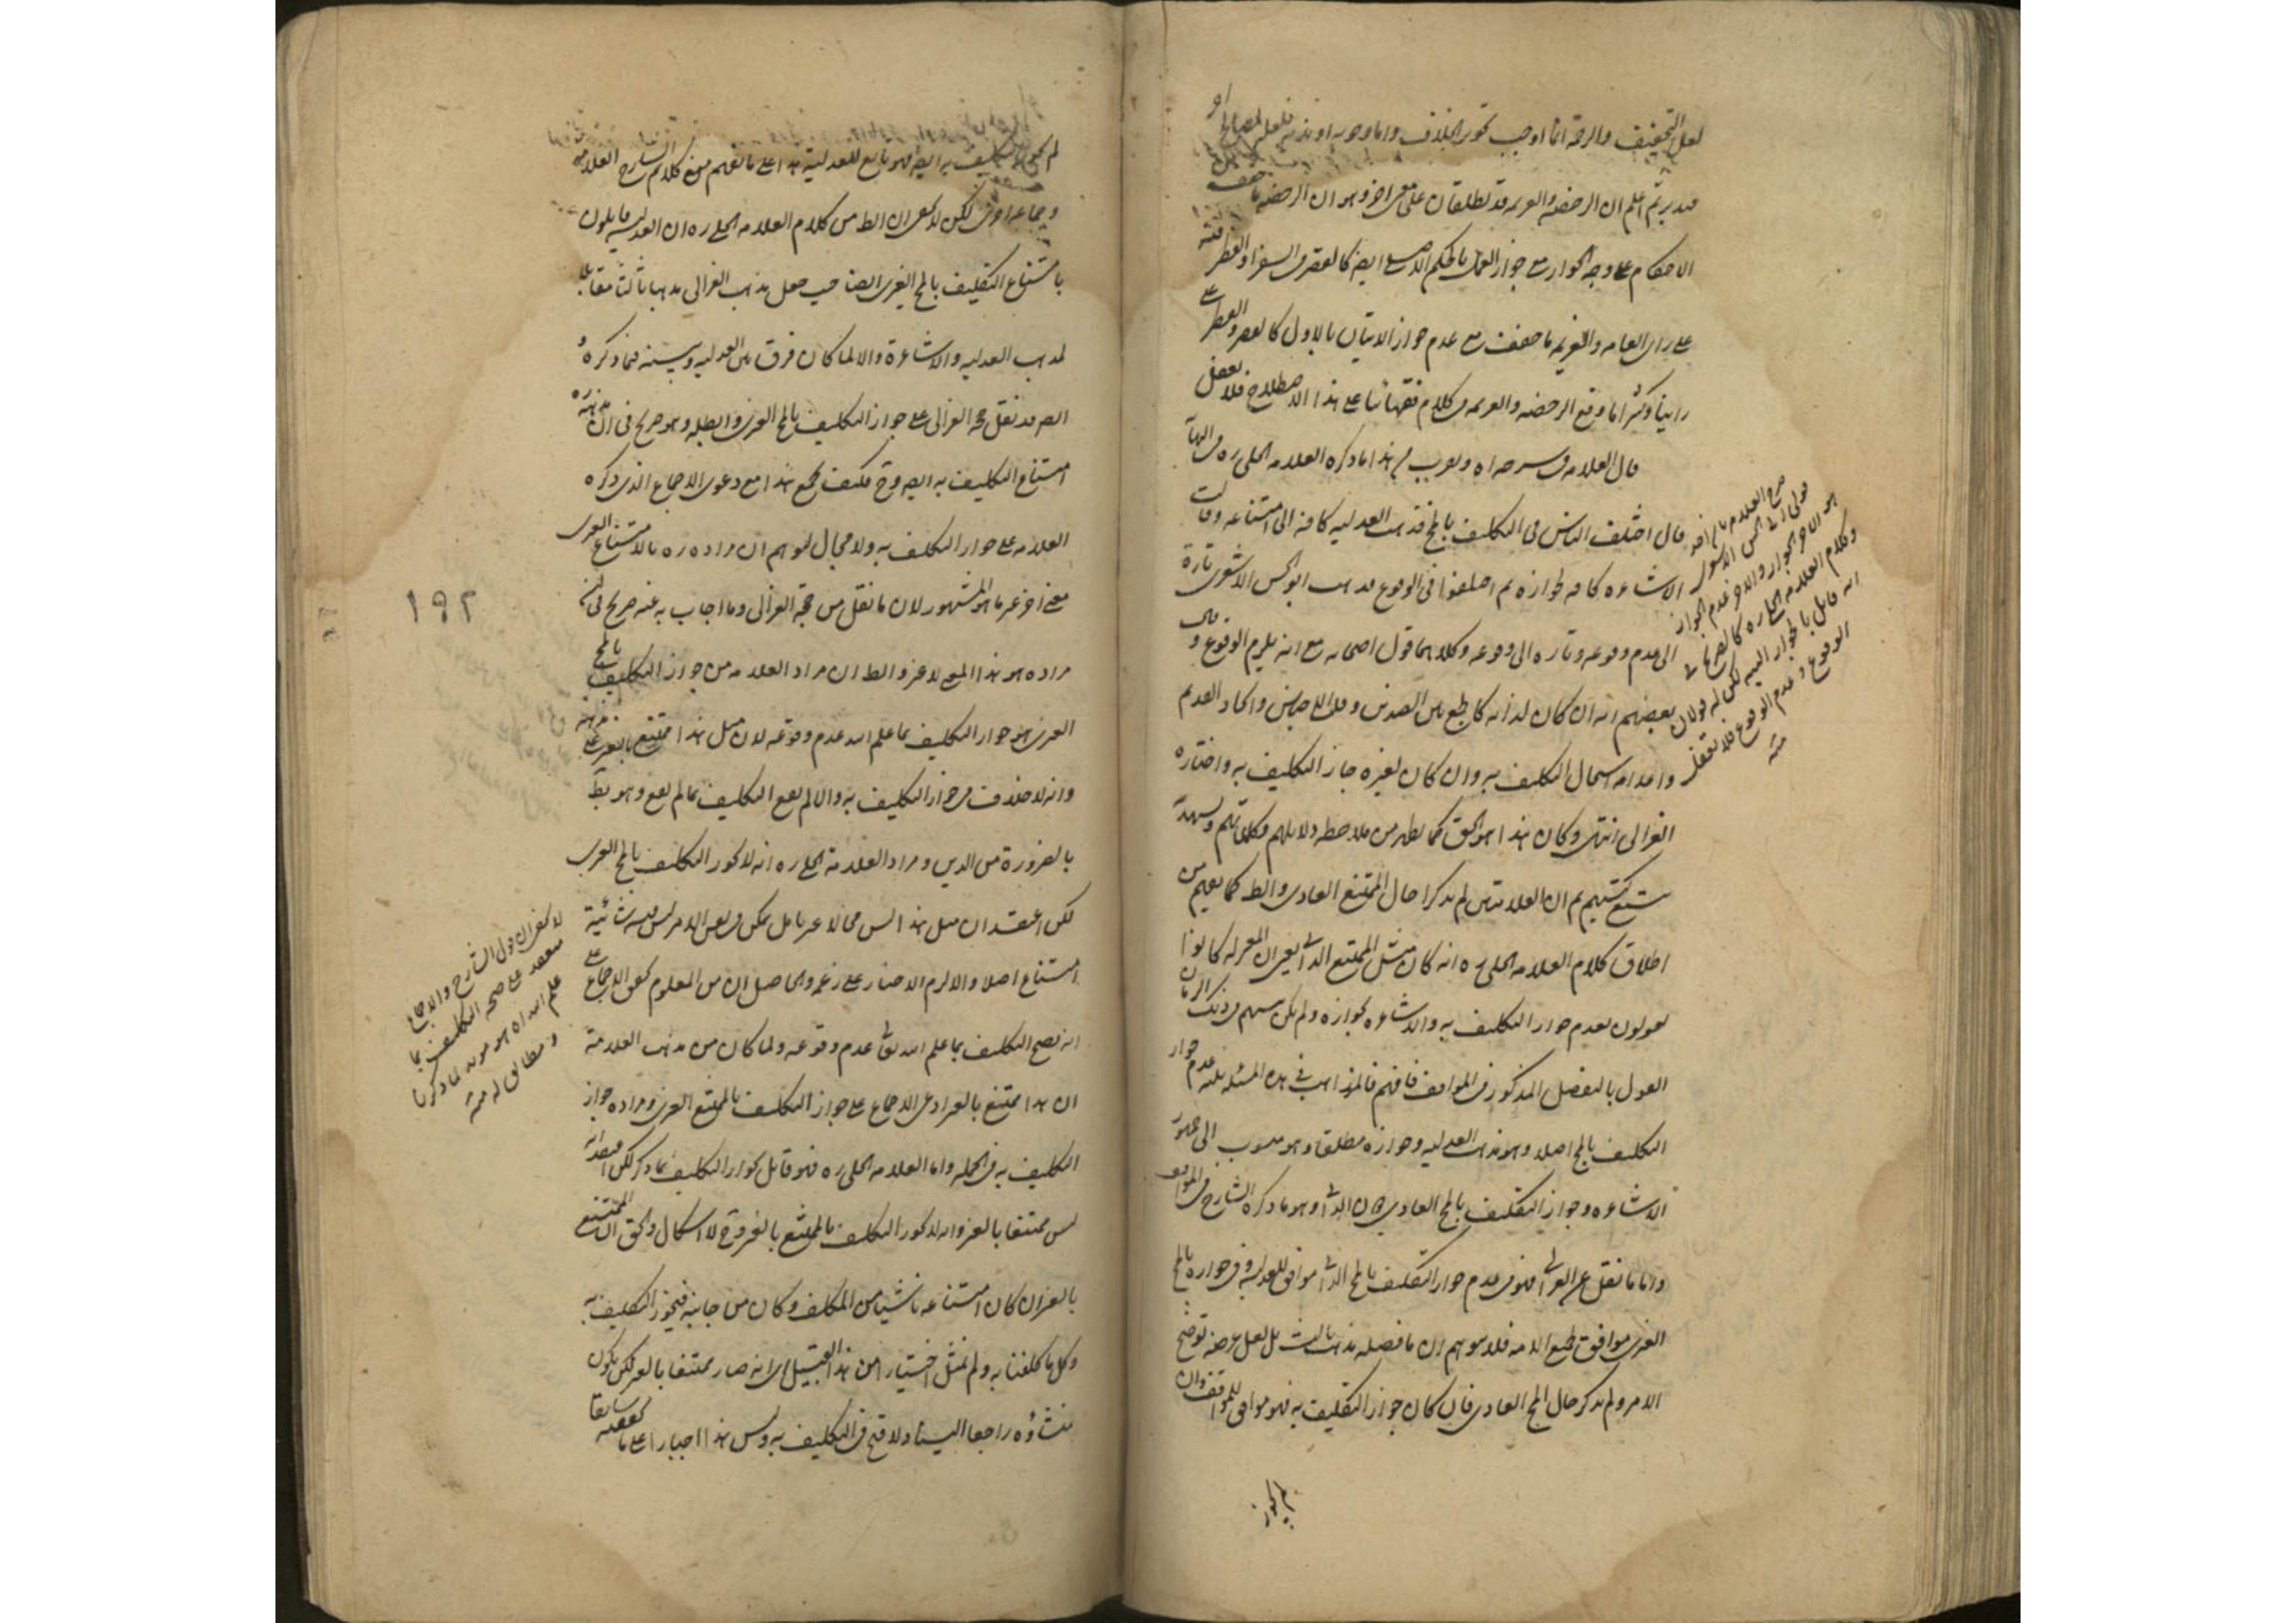 لعل التخفيف والرحمة انما اوجب تجويز الخلاف واما وجوبه او ندبه فلعله لمصالح او
فتدبر ثم اعلم ان الرخصة والعزيمة قد تطلقان على معنى اخر وهو ان الرخصة ما خفف
الاحكام على وجه الجواز مع جواز العمل بالحكم الاصلى ايضا كالقصر فى السفر
على راى العامه والعزيمه ما خففت مع عدم جواز الاتيان بالاول كالقصر والفطر على
راينا وكثيرا ما وقع الرخصه والعزيمه فى كلام فقهائنا على هذا الاصطلاح فلا تغفل
قال العلامه فى شرحه اه ويقرب من هذا ما ذكره العلامه الحلى ره فى النهاية
قال اختلف الناس فى التكليف بالمح فذهب العدليه كافه الى امتناعه وقالت
الاشاعره كافه بجوازه ثم اختلفوا فى الوقوع فذهب ابو الحسن الاشعرى تارة
الى عدم وقوعه وتاره الى وقوعه وكلاهما قول اصحابه مع انه يلزم الوقوع وقال
بعضهم انه ان كان لذاته كالجمع بين الضدين وقلب الاجناس وايجاد القديم
واعدامه استحال التكليف به وان كان لغيره جاز التكليف به واختاره
الغزالى انتهى وكان هذا هو الحق كما يظهر من ملاحظه دلايلهم وكلماتهم
تتبع كتبهم ثم ان العلامتين لم يذكرا حال الممتنع العادى والظ كما يفهم من
اطلاق كلام العلامه الحلى ره انه كان مثل الممتنع الذاتى يعنى ان المعتزله كانوا
يقولون بعدم جواز التكليف به والاشاعره بجوازه ولم يكن بينهم فى ذلك الزمان
القول بالتفصيل المذكور فى المواقف فافهم فالمذاهب فى هذه المسئله ثلثه عدم جواز
التكليف بالمح اصلا وهو مذهب العدليه وجوازه مطلقا وهو منسوب الى جمهور
الاشاعره وجواز التكليف بالمح العادى دون الذاتى وهو ما ذكره الشارح فى المواقف
واما ما نقل عن الغزالى فهو فى عدم جواز التكليف بالمح الذاتى موافق للعدليه وفى جوازه بالمح
الغيرى موافق لجميع الامه فلا يتوهم ان ما فصله مذهب ثالث بل لعل غرضه توضيح
الامر ولم يذكر حال المح العادى فان كان جواز التكليف به فهو موافق للمواقف وان
لم يجوز
صرح العلامه بان احد
قولى ابى الحسن الاشعرى
هو الاخر الجواز والاخر عدم الجواز
وكلام العلامه الحلى ره كالصريح فى
انه قايل بالجواز البته لكن له قولان
الوقوع وعدم الوقوع فلا تغفل
منه
لم يجوز التكليف به ايضا فهو تابع للعدلية هذا على ما يفهم من كلام الشارح العلامه
وجماعه اخرى لكن لا يخفى ان الظ من كلام العلامه الحلى ره ان العدليه قايلون
بامتناع التكليف بالمح الغيرى ايضا حيث جعل مذهب الغزالى مذهبا ثالثا مقابلا
لمذهب العدليه والاشاعرة والا لما كان فرق بين العدليه وبينه فيما ذكره
ايضا قد نقل حجه الغزالى على جواز التكليف بالمح الغيرى وابطله وهو صريح فى ان مذهبه
امتناع التكليف به ايضا وح فكيف يجمع هذا مع دعوى الاجماع الذى ذكره
العلامه على جواز التكليف به ولا مجال لتوهم ان مراده ره بالامتناع الغيرى
معنى اخر غير ما هو المشهور لان ما نقل من حجه الغزالى وما اجاب به عنه صريح فى ان
مراده هو هذا المعنى لا غير والظ ان مراد العلامه من جواز التكليف بالمح
الغيرى هو جواز التكليف بما علم الله عدم وقوعه لان مثل هذا ممتنع بالغير
وانه لا خلاف فى جواز التكليف به والا لم يقع التكليف بما لم يقع وهو بط
بالضرورة من الدين ومراد العلامة الحلى ره انه لا يجوز التكليف بالمح الغيرى
لكن اعتقد ان مثل هذا ليس محالا غيريا بل ممكن وليس فيه شائبة
امتناع اصلا والا لزم الاجبار على زعمه والحاصل ان من المعلوم تحقق الاجماع على
انه يصح التكليف بما علم الله تعالى عدم وقوعه ولما كان من مذهب العلامة
ان هذا ممتنع بالغير ادعى الاجماع على جواز التكليف بالممتنع الغيرى ومراده جواز
التكليف به فى الجمله واما العلامه الحلى ره فهو قائل بجواز التكليف بما ذكر لكن اعتقد انه
ليس ممتنعا بالغير وانه لا يجوز التكليف بالممتنع بالغير وح لا اشكال والحق ان الممتنع
بالغير ان كان امتناعه ناشيا من المكلف وكان من جانبه فيجوز التكليف به
وكل ما كلفنا به ولم نمتثل اختيارا من هذا القبيل اى انه صار ممتنعا بالغير لكن يكون
منشاؤه راجعا الينا ولا قبح فى التكليف به وليس هذا اجبارا على ما حققته سابقا
١٩٢
لا يخفى ان قول الشارح والاجماع
منعقد على صحه التكليف بما
علم الله اه هو مويد لما ذكرنا
ومطابق له منه